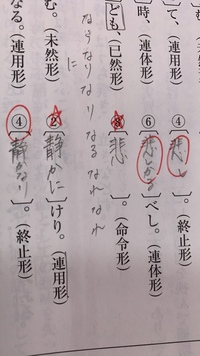 て、(連用形)
④〔悲し〕。(終止形)
時、(連体形)
⑥〔悲しかる〕べし。(連体形)
ども、(已然形)
⑧〔悲〕。(命令形)
なら なり なり なる なれ なれ
に
む。(未然形)
②〔静かに〕けり。(連用形)
なる。(連用形)
④〔静かなり〕。(終止形)